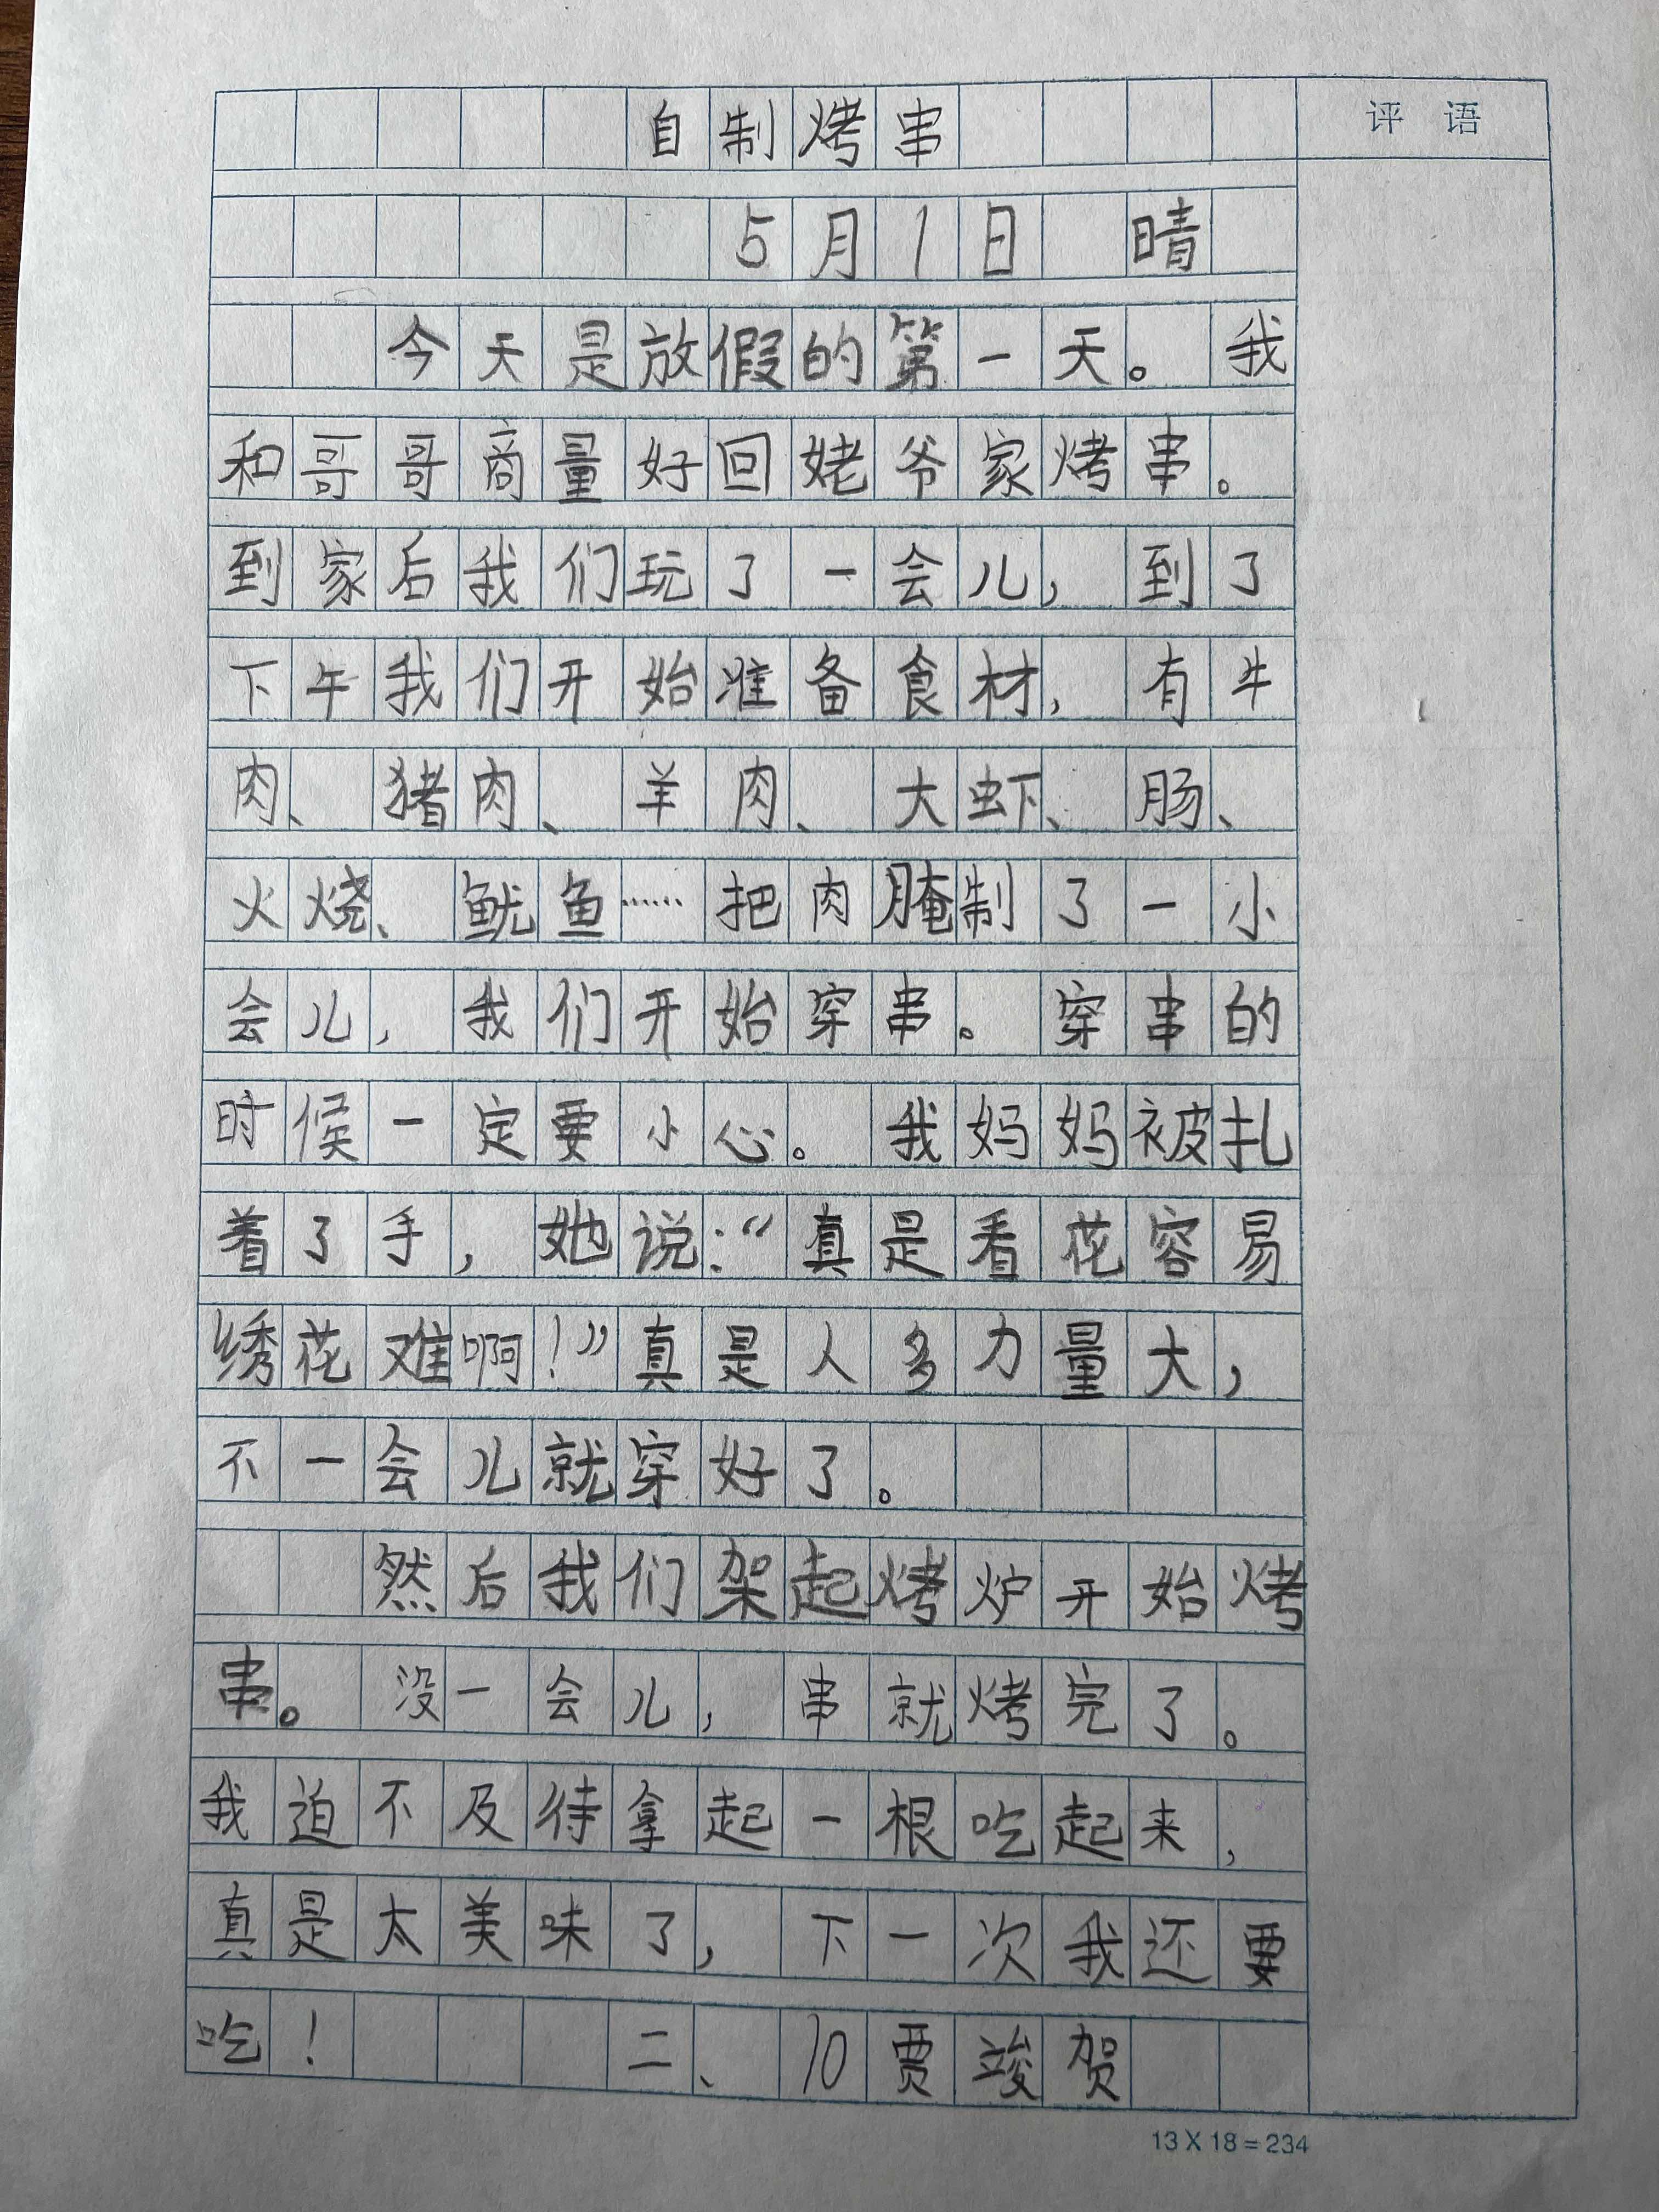 自制烤串
评语
5月1日 晴
今天是放假的第一天。我
和哥哥商量好回姥爷家烤串。
到家后我们玩了一会儿，到了
下午我们开始准备食材，有牛
肉、猪肉、羊肉、大虾、肠、
火烧、鱿鱼……把肉腌制了一小
会儿，我们开始穿串。穿串的
时候一定要小心。我妈妈被扎
着了手，她说：“真是看花容易
绣花难啊！”真是人多力量大，
不一会儿就穿好了。
然后我们架起烤炉开始烤
串。没一会儿，串就烤完了。
我迫不及待拿起一根吃起来，
真是太美味了，下一次我还要
吃！ 二、10贾竣贺
13X18=234